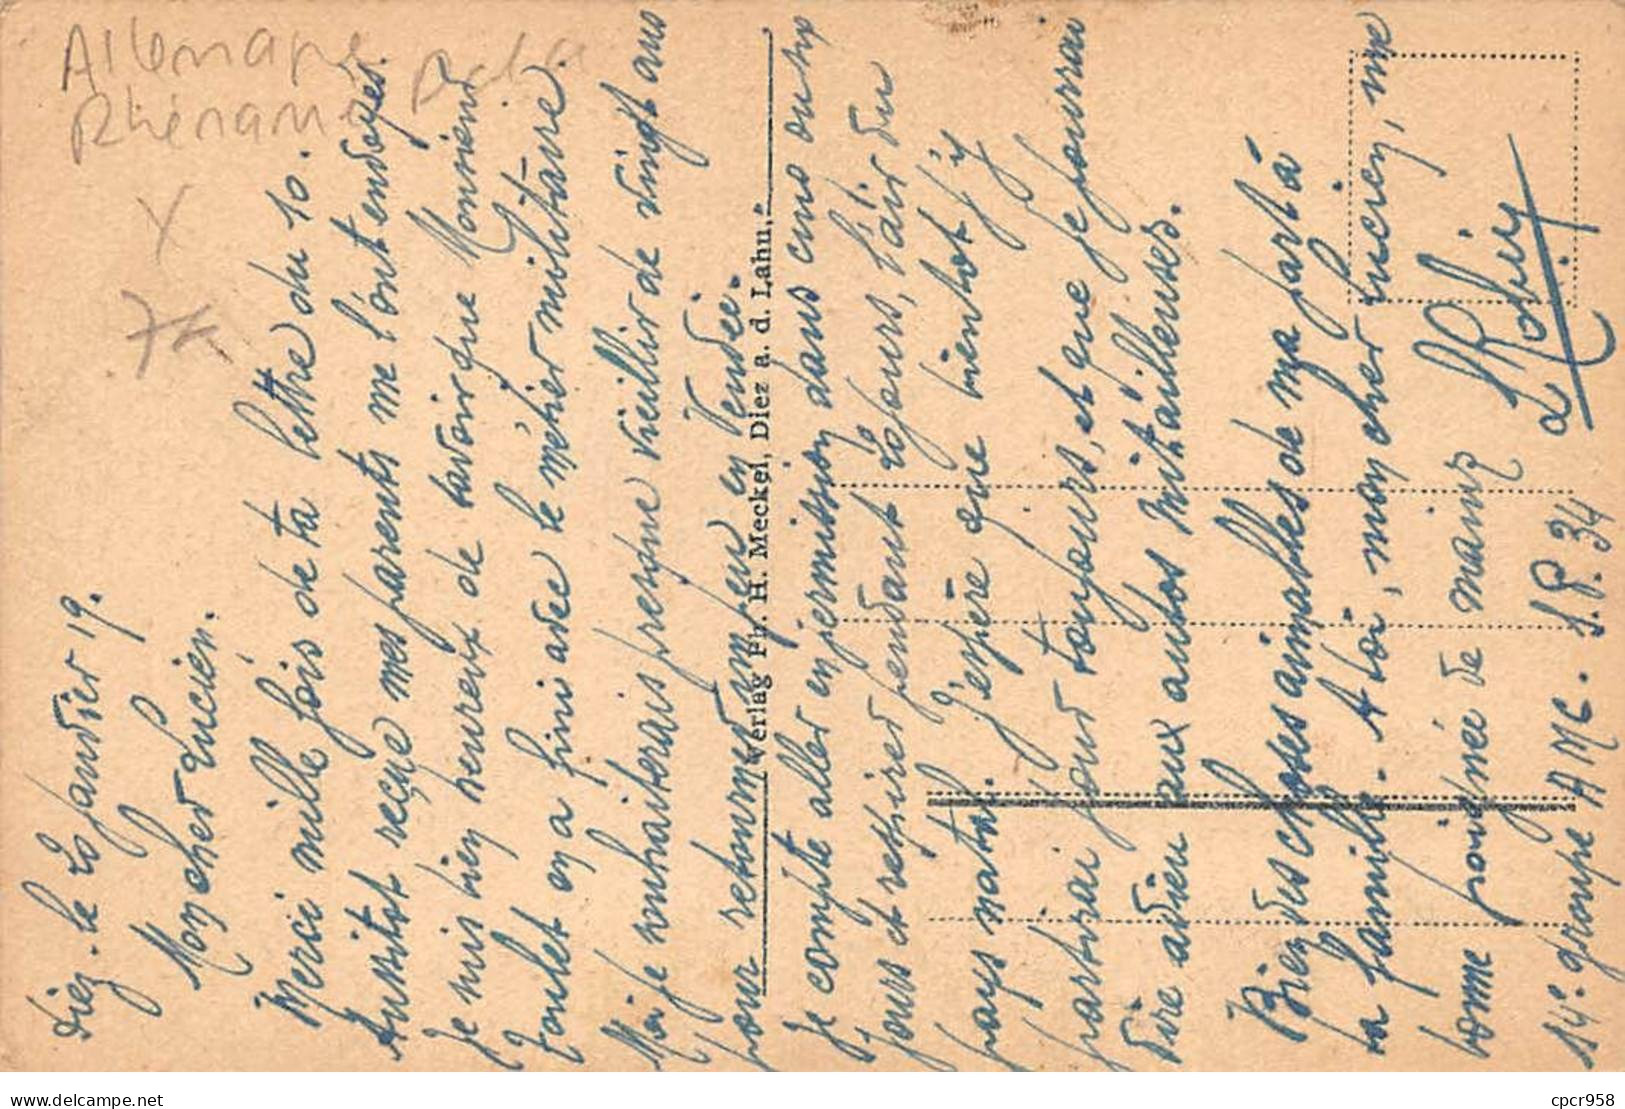 Diez. le 20 janvier 19.
Mon cher Lucien.
Merci mille fois de ta lettre du 10.
Aussitôt reçue mes parents me l'ont envoyée.
Je suis bien heureux de savoir que Monsieur
Foulet en a fini avec le métier militaire.
Moi je souhaiterais presque vieillir de vingt ans
pour retourner un peu en Vendée.
Je compte aller en permission dans cinq ou six
jours et respirer pendant 20 jours, l'air du
pays natal. J'espère que bientôt j'y
partirai pour toujours, et que je pourrai
dire adieu aux autos mitrailleuses.
Bien des choses aimables de ma part à
ta famille. A toi, mon cher Lucien, une
bonne poignée de mains
L Robin
14e groupe AMC. S.P. 34
Verlag Ph. H. Meckel, Diez a. d. Lahn.
Allemagne
Rhénanie
74
delcampe.net
cpcr958